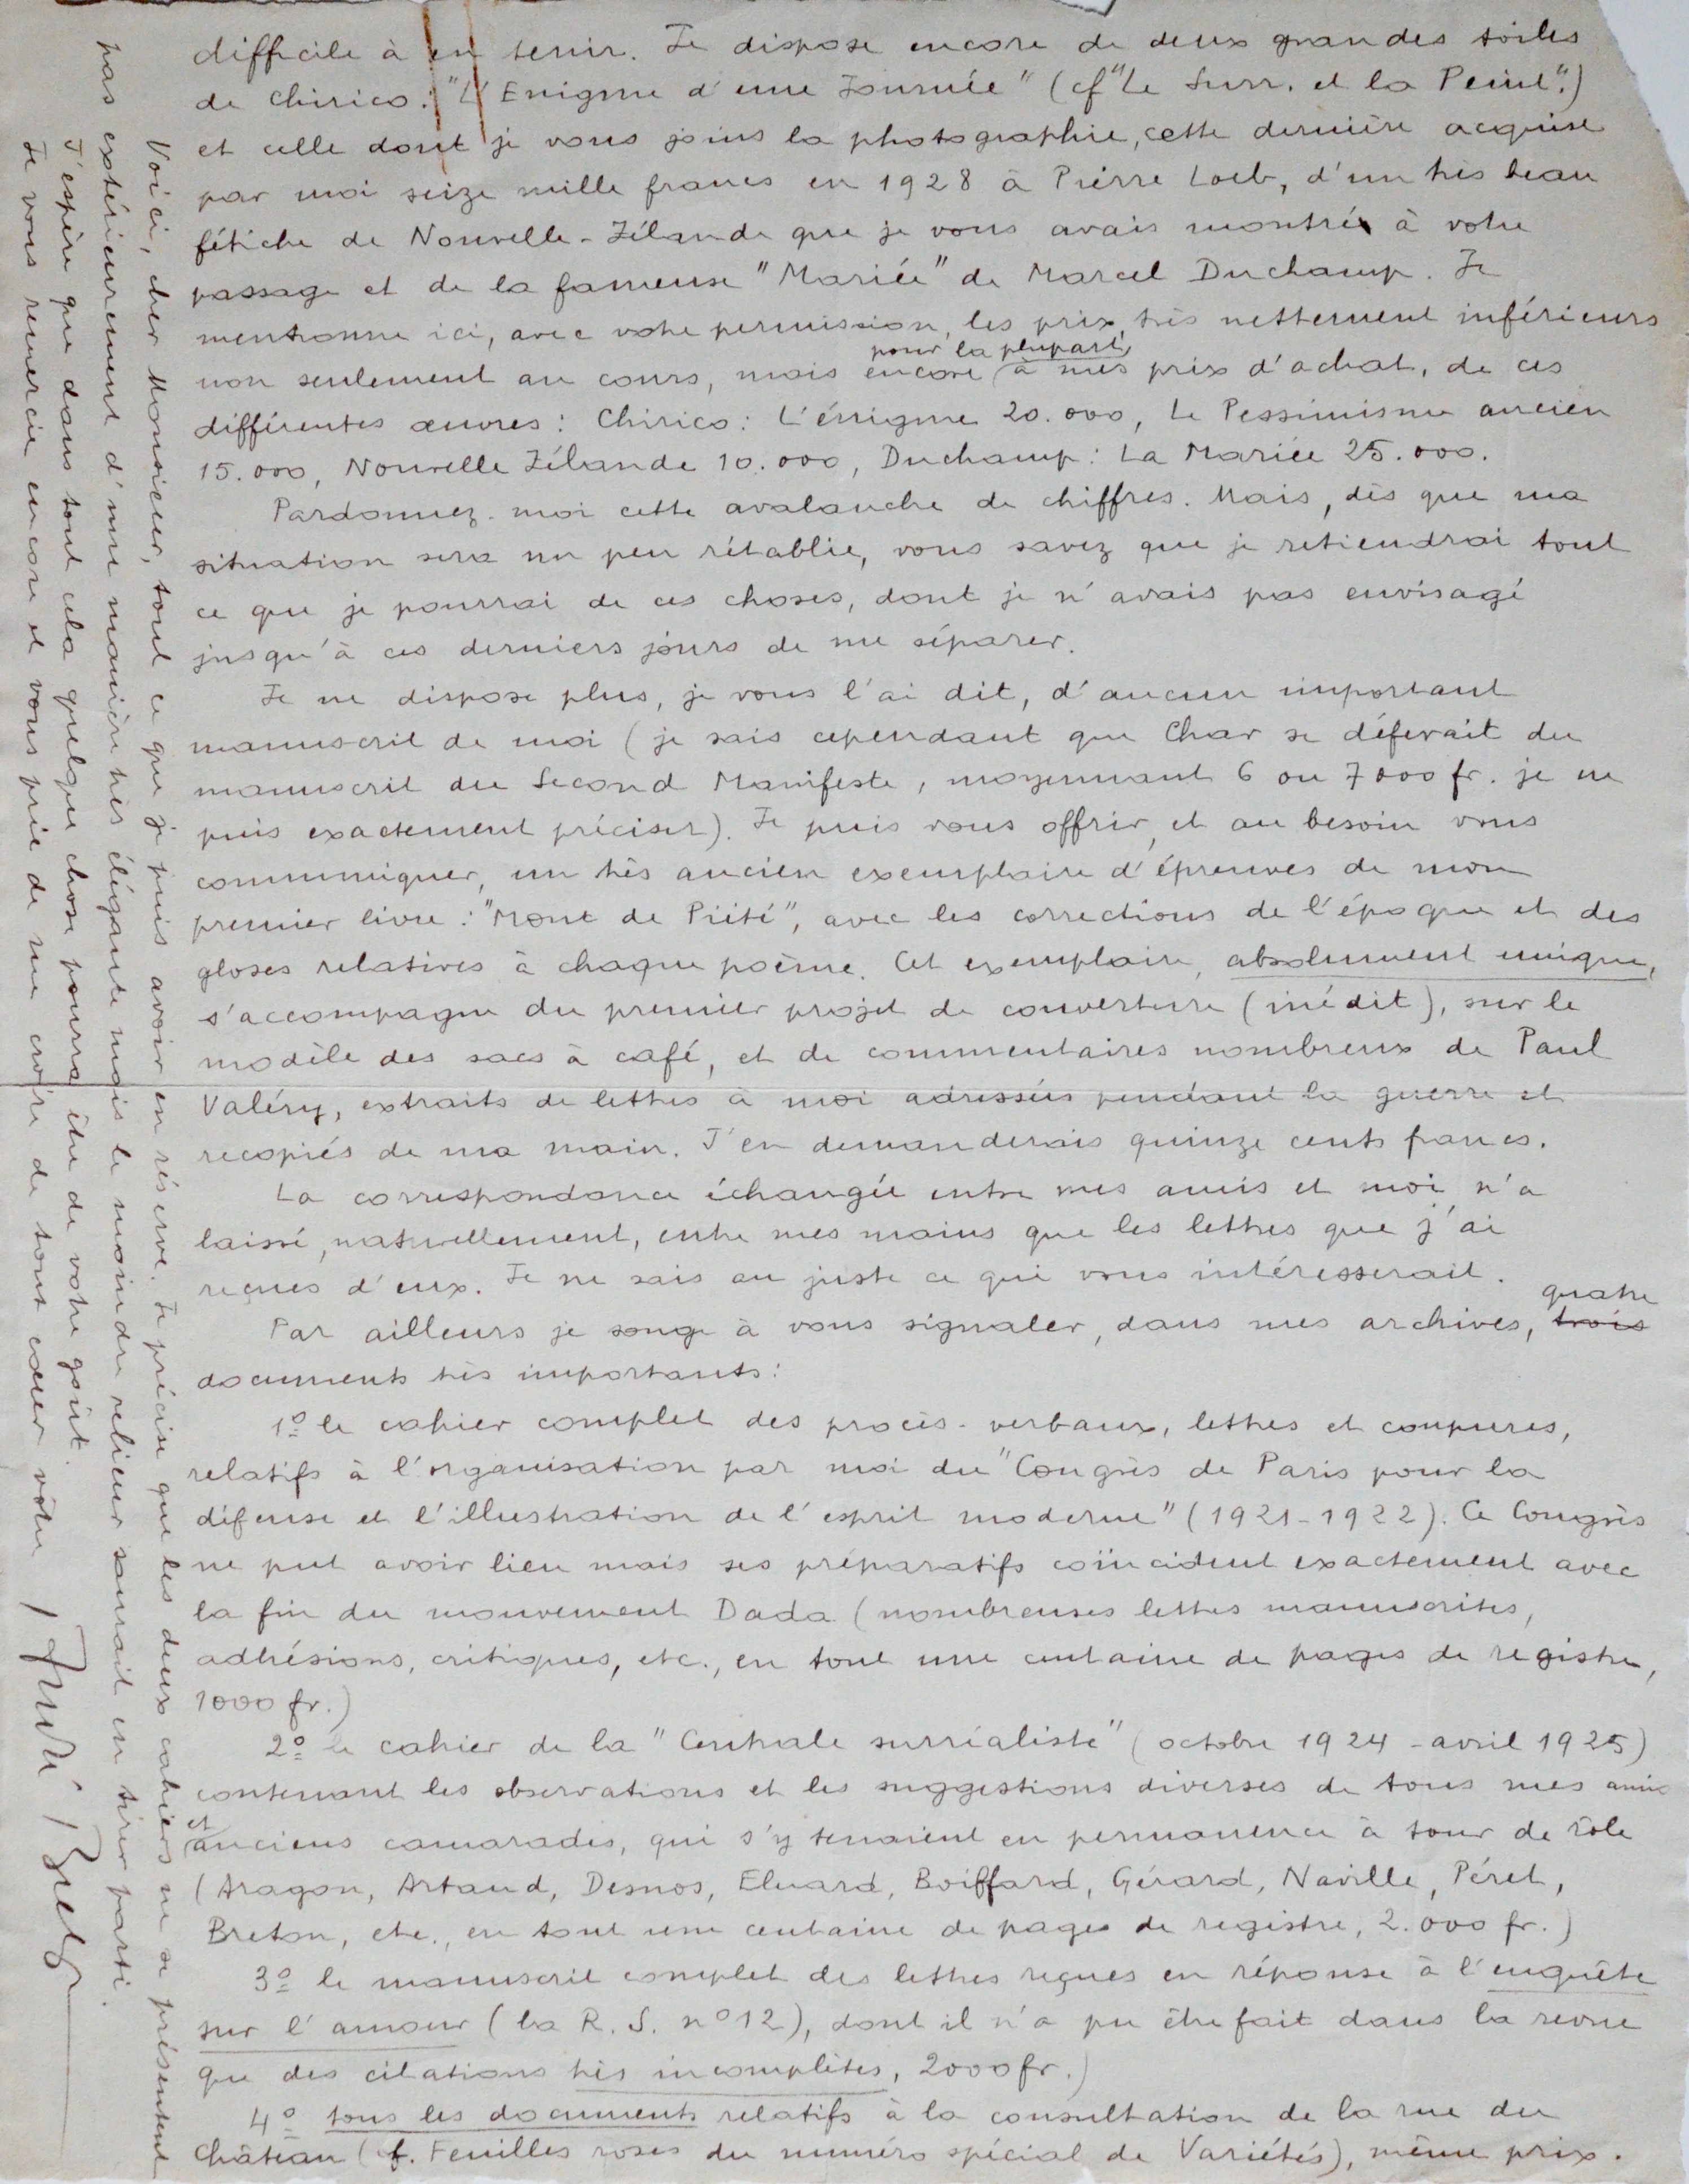 difficile à en tenir. Je dispose encore de deux grandes toiles
de Chirico : "L'Enigme d'une Journée" (cf "Le Surr. et la Peint.")
et celle dont je vous joins la photographie, cette dernière acquise
par moi seize mille francs en 1928 à Pierre Loeb, d'un très beau
fétiche de Nouvelle-Zélande que je vous avais montré à votre
passage et de la fameuse "Mariée" de Marcel Duchamp. Je
mentionne ici, avec votre permission, les prix, très nettement inférieurs
pour la plupart
non seulement au cours, mais encore à mes prix d'achat, de ces
différentes œuvres : Chirico : L'énigme 20.000, Le Pessimisme ancien
15.000, Nouvelle Zélande 10.000, Duchamp : La Mariée 25.000.
Pardonnez-moi cette avalanche de chiffres. Mais, dès que ma
situation sera un peu rétablie, vous savez que je retiendrai tout
ce que je pourrai de ces choses, dont je n'avais pas envisagé
jusqu'à ces derniers jours de me séparer.
Je ne dispose plus, je vous l'ai dit, d'aucun important
manuscrit de moi (je sais cependant que Char se déferait du
manuscrit du Second Manifeste, moyennant 6 ou 7000 fr. je ne
puis exactement préciser). Je puis vous offrir, et au besoin vous
communiquer, un très ancien exemplaire d'épreuves de mon
premier livre : "Mont de Piété", avec les corrections de l'époque et des
gloses relatives à chaque poème. Cet exemplaire, absolument unique,
s'accompagne du premier projet de couverture (inédit), sur le
modèle des sacs à café, et de commentaires nombreux de Paul
Valéry, extraits de lettres à moi adressées pendant la guerre et
recopiés de ma main. J'en demanderais quinze cents francs.
La correspondance échangée entre mes amis et moi n'a
laissé, naturellement, entre mes mains que les lettres que j'ai
reçues d'eux. Je ne sais au juste ce qui vous intéresserait.
quatre
Par ailleurs je songe à vous signaler, dans mes archives, trois
documents très importants :
1º le cahier complet des procès-verbaux, lettres et coupures,
relatifs à l'organisation par moi du "Congrès de Paris pour la
défense et l'illustration de l'esprit moderne" (1921-1922). Ce Congrès
ne put avoir lieu mais ses préparatifs coïncident exactement avec
la fin du mouvement Dada (nombreuses lettres manuscrites,
adhésions, critiques, etc., en tout une centaine de pages de registre,
1000 fr.)
2º le cahier de la "Centrale surréaliste" (octobre 1924 - avril 1925)
contenant les observations et les suggestions diverses de tous mes amis
et
anciens camarades, qui s'y tenaient en permanence à tour de rôle
(Aragon, Artaud, Desnos, Eluard, Boiffard, Gérard, Naville, Péret,
Breton, etc., en tout une centaine de pages de registre, 2.000 fr.)
3º le manuscrit complet des lettres reçues en réponse à l'enquête
sur l'amour (la R. S. nº 12), dont il n'a pu être fait dans la revue
que des citations très incomplètes, 2000 fr.)
4º tous les documents relatifs à la consultation de la rue du
Château (cf. Feuilles roses du numéro spécial de Variétés), même prix.
Voici, cher Monsieur, tout ce que je puis avoir en réserve. Je précise que les deux cahiers ne se présentent
pas extérieurement d'une manière très élégante mais le moindre relieur saurait en tirer parti.
J'espère que dans tout cela quelque chose pourra être de votre goût.
Je vous remercie encore et vous prie de me croire de tout cœur vôtre
André Breton